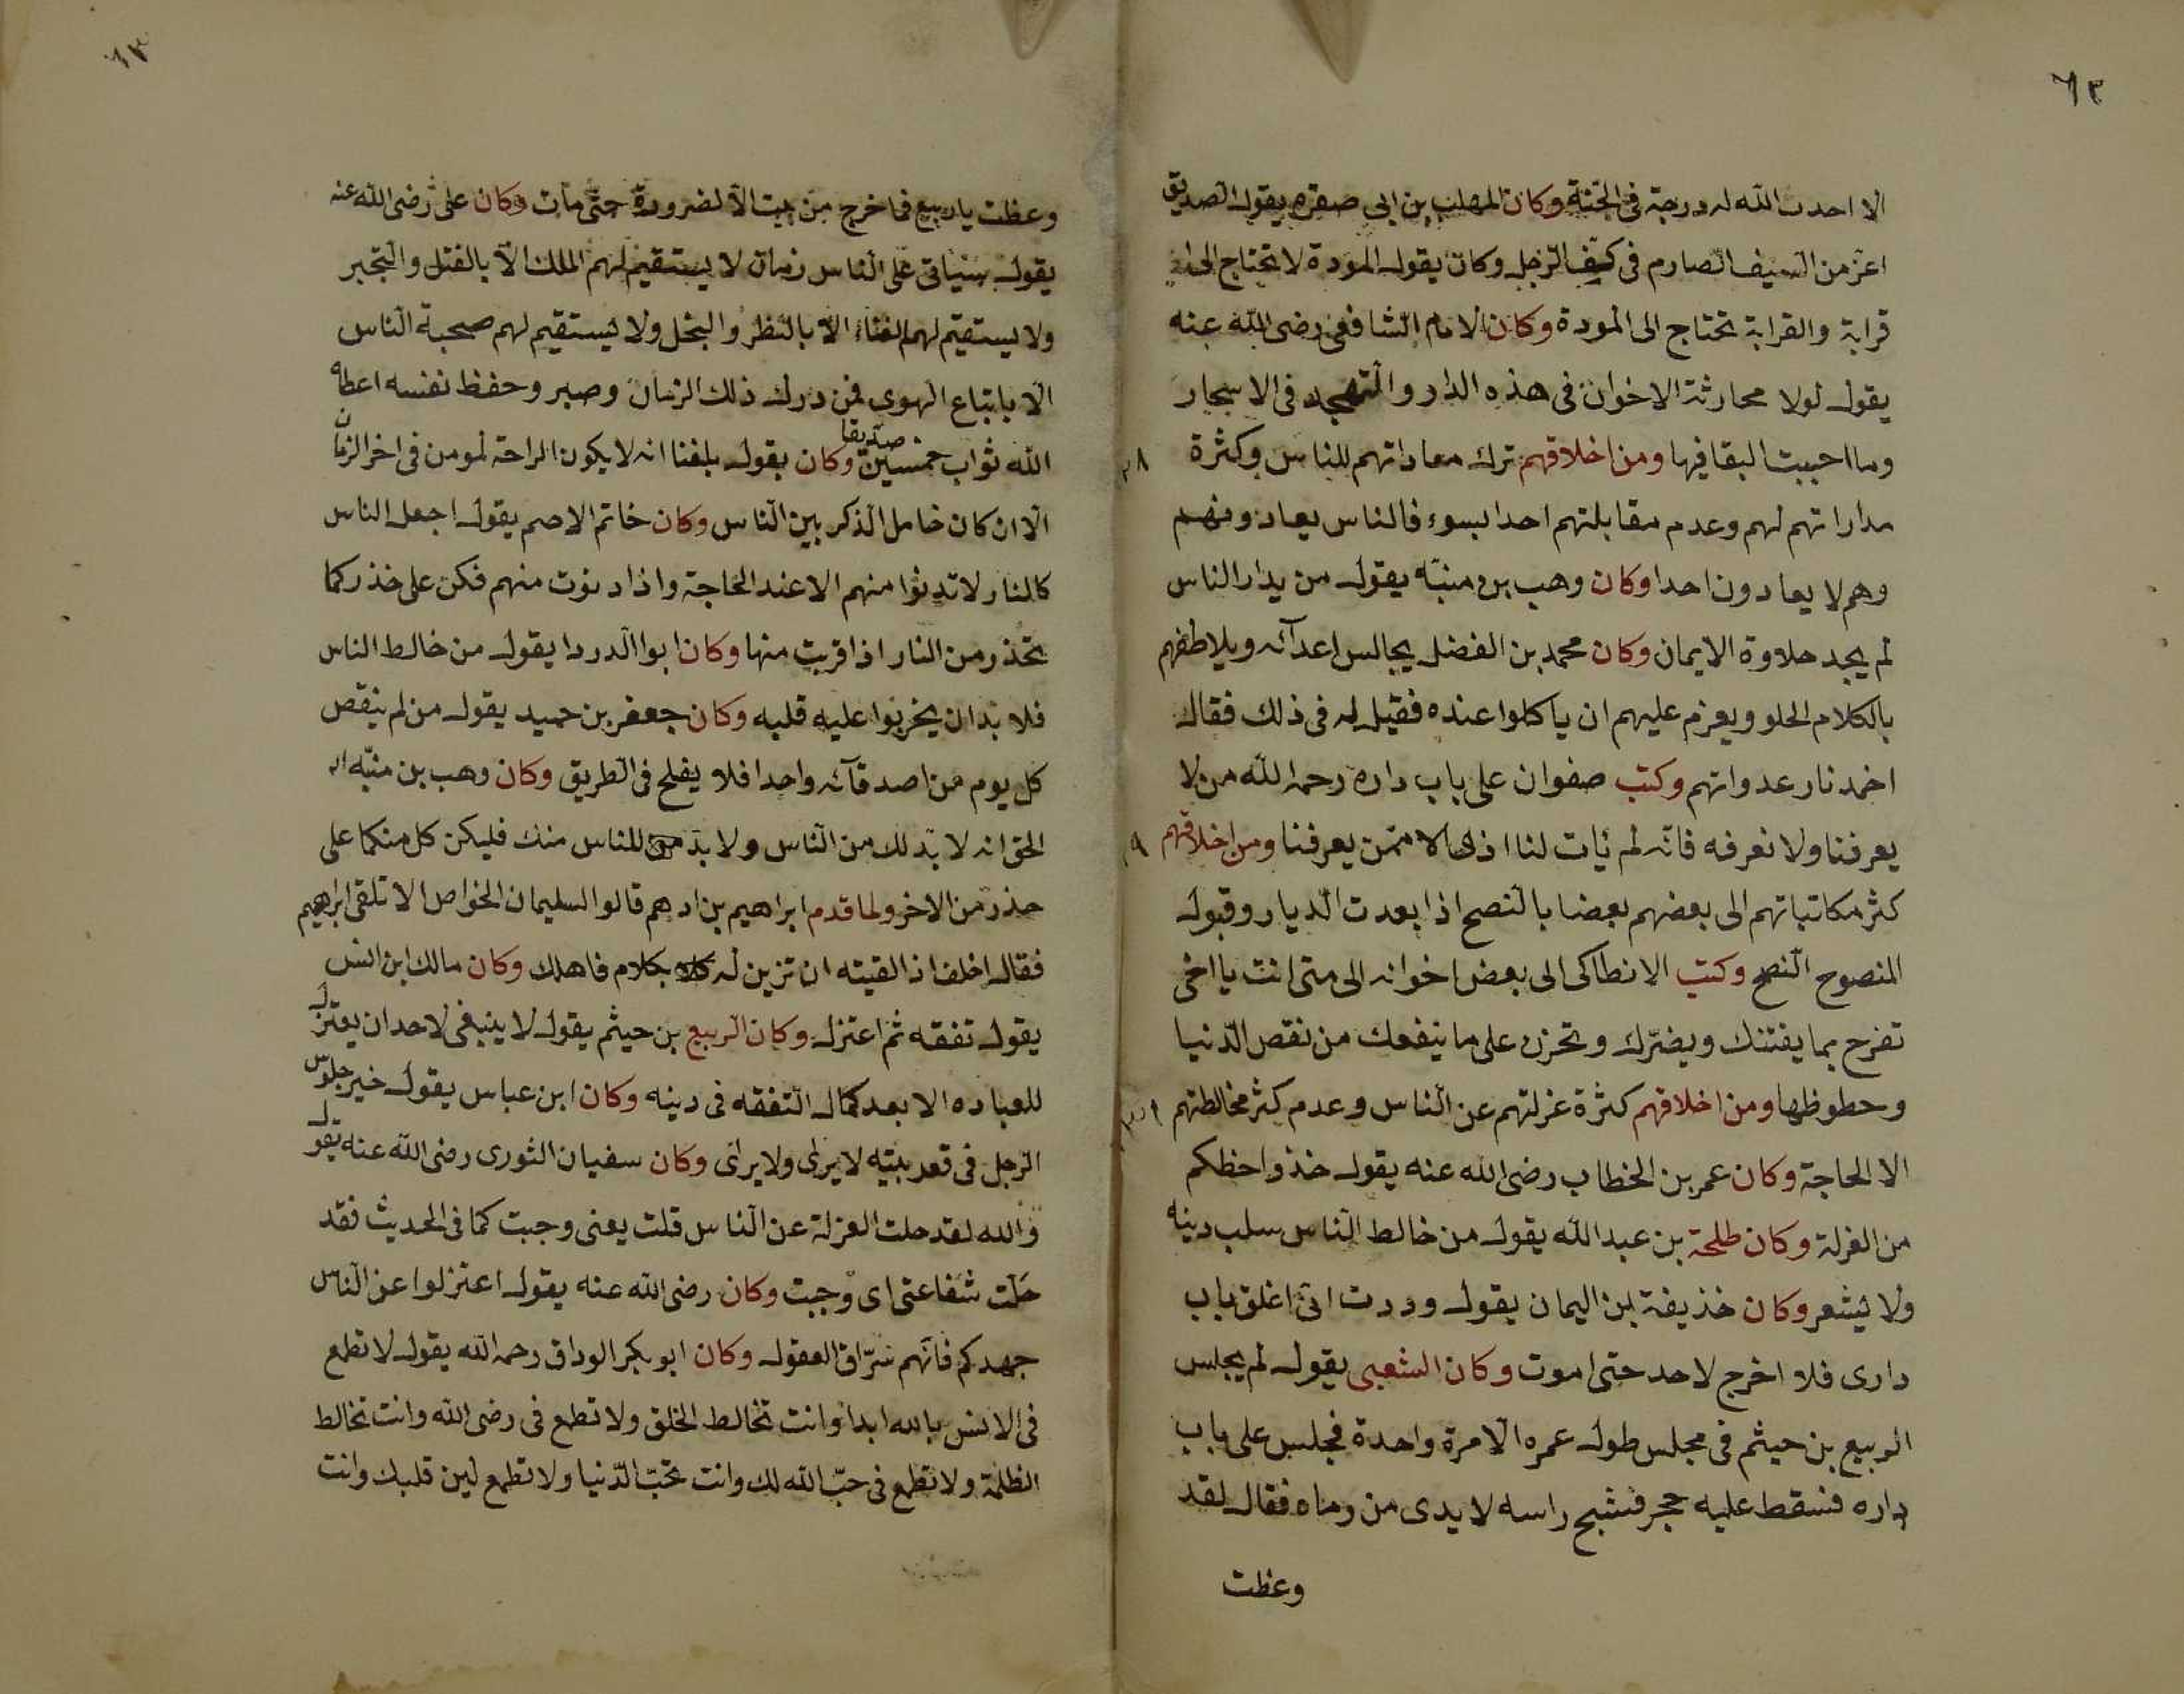 ٦٢
الا احدث الله له درجة فى الجنة وكان المهلب بن ابي صفره يقول الصديق
اعز من السيف الصارم فى كف الرجل وكان يقول المودة لا تحتاج الى
قرابة والقرابة تحتاج الى المودة وكان الامام الشافعى رضى الله عنه
يقول لولا محارثة الاخوان فى هذه الدار والتهجد فى الاسحار
وما احببت البقا فيها ومن اخلاقهم ترك معاداتهم للناس وكثرة
مداراتهم لهم وعدم مقابلتهم احدا بسوء فالناس يعادونهم
وهم لا يعادون احدا وكان وهب بن منبّه يقول من يدار الناس
لم يجد حلاوة الايمان وكان محمد بن الفضل يجالس اعدآئه ويلاطفهم
بالكلام الحلو ويعزم عليهم ان ياكلوا عنده فقيل له فى ذلك فقال
اخمد نار عدواتهم وكتب صفوان على باب داره رحمه الله من لا
يعرفنا ولا نعرفه فانّه لم ئات لنا اذى الا ممّن يعرفنا ومن اخلاقهم
كثر مكاتباتهم الى بعضهم بعضا بالنصح اذا بعدت الديار وقبول
المنصوح النّصح وكتب الانطاكى الى بعض اخوانه الى متى انت يا اخى
تفرح بما يفتنك ويضرّك وتحزن على ما ينفعك من نقص الدّنيا
وحطوظها ومن اخلاقهم كثرة عزلتهم عن الناس وعدم كثر مخالطتهم
الا لحاجة وكان عمر بن الخطاب رضى الله عنه يقول خذوا حظكم
من العزلة وكان طلحة بن عبد الله يقول من خالط الناس سلب دينه
ولا يشعر وكان خذيفة ابن اليمان يقول وددت انّى اغلق باب
دارى فلا اخرج لاحد حتى اموت وكان الشعبى يقول لم يجلس
الربيع بن حيثم فى مجلس طول عمره الا مرة واحدة فجلس على باب
داره فسقط عليه حجر فشبح راسه لا يدى من رماه فقال لقد
وعظت
٦٣
وعظت يا ربيع فما خرج من بيت الا لضرورة حتى مات وكان على رضى الله عنه
يقول سياتى على الناس زمان لا يستقيم لهم الملك الا بالقتل والتجبر
ولا يستقيم لهم الغناء الا بالنظر والبخل ولا يستقيم لهم صحبة الناس
الا باتباع الهوى فمن درك ذلك الزمان وصبر وحفظ نفسه اعطاه
الله ثواب خمسين صدّيقا وكان يقول بلغنا انه لا يكون الراحة لمومن فى اخر الزمان
الا ان كان خامل الذكر بين الناس وكان خاتم الاصم يقول اجعل الناس
كالنار لا تدنوا منهم الا عند الحاجة واذا دنوت منهم فكن على خذر كما
تحذر من النار اذا قربت منها وكان ابوا الدردا يقول من خالط الناس
فلا بدّ ان يخربوا عليه قلبه وكان جعفر بن حميد يقول من لم ينقص
كل يوم من اصدقآئه واحدا فلا يفلح فى الطريق وكان وهب بن منبّه
الحق انه لا بدّ لك من الناس ولا بدّ للناس منك فليكن كل منكما على
حذر من الاخر ولما قدم ابراهيم بن ادهم قالوا السليمان الخواص الا تلقى ابراهيم
فقال اخلف اذا لقيته ان تزين له بكلام فاهلك وكان مالك ابن انس
يقول تفقه ثم اعتزل وكان الربيع بن حيثم يقول لا ينبغى لاحد ان يعتزل
للعباده الا بعد كمال التفقه فى دينه وكان ابن عباس يقول خير جلوس
الرجل فى قعر بيته لا يرى ولا يرى وكان سفيان الثورى رضى الله عنه يقول
والله لقد حلت العزلة عن الناس قلت يعنى وجبت كما فى الحديث فقد
حلّت شفاعتى اى وجبت وكان رضى الله عنه يقول اعتزلوا عن الناس
جهدكم فانّهم سرّاق العقول وكان ابو بكر الوداق رحمه الله يقول لا تطمع
فى الانس بالله ابدا وانت تخالط الخلق ولا تطمع فى رضى الله وانت تخالط
الظلمة ولا تطمع فى حبّ الله لك وانت تحبّ الدّنيا ولا تطمع لين قلبك وانت